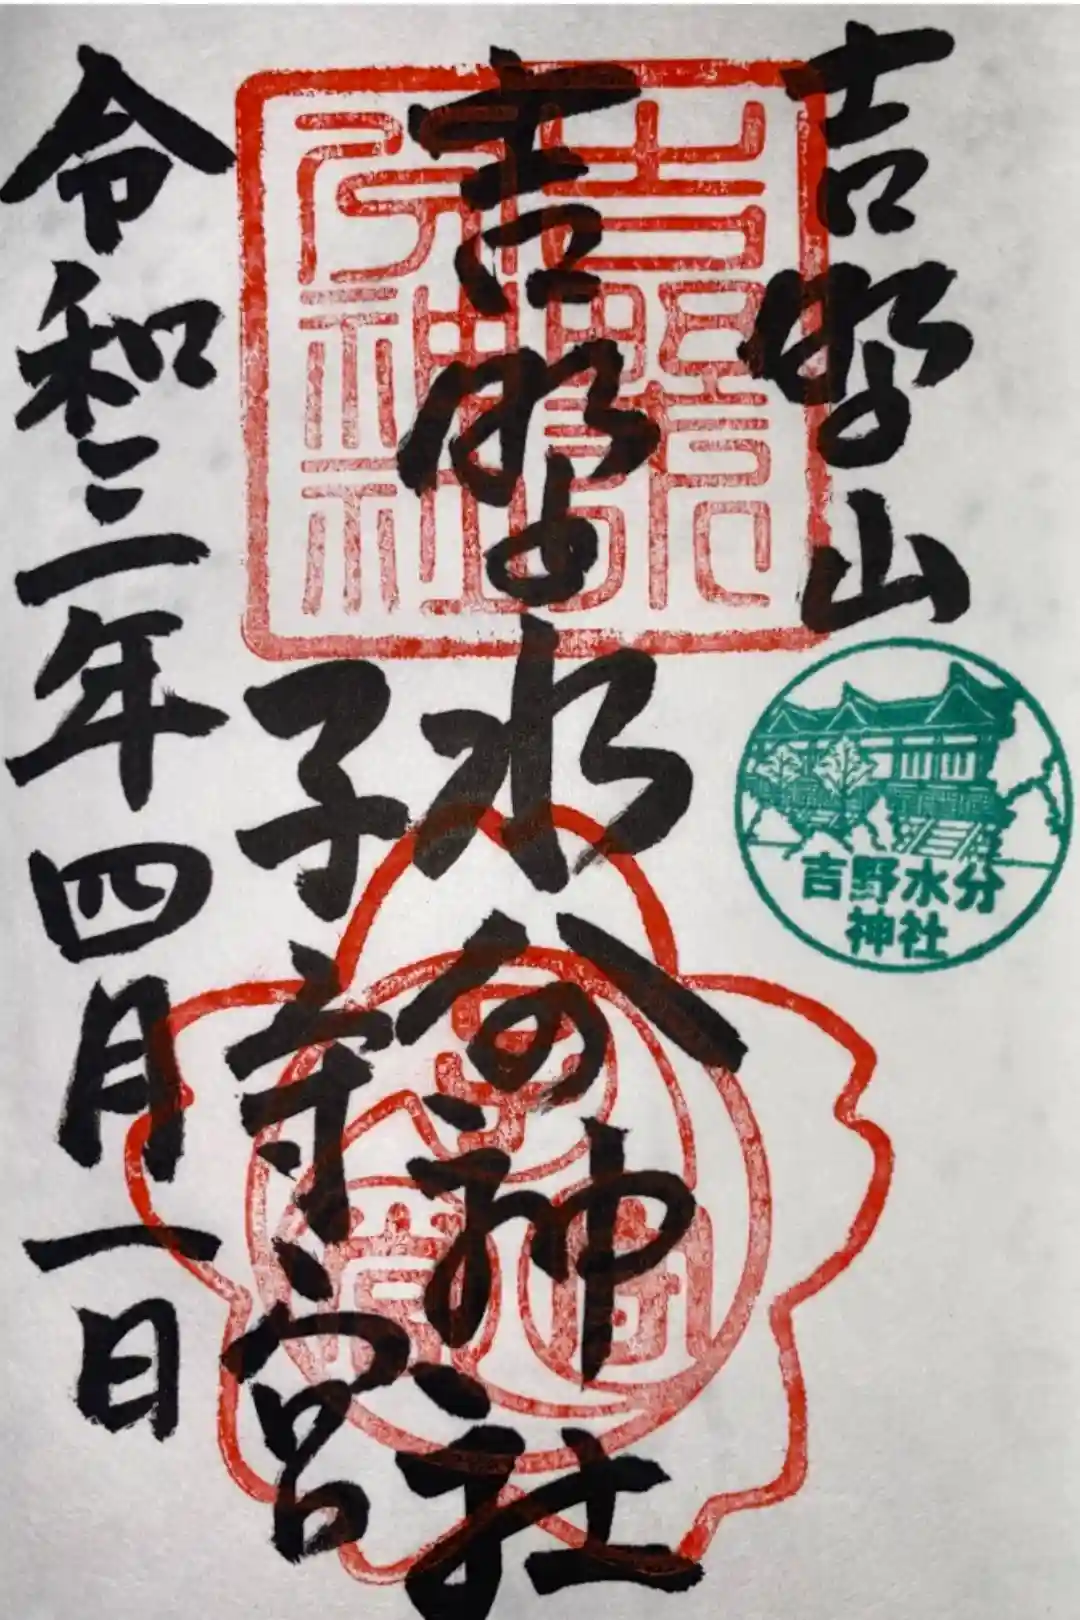 吉野山
吉野水分神社
子守宮
令和三年四月一日
吉野水分
神社